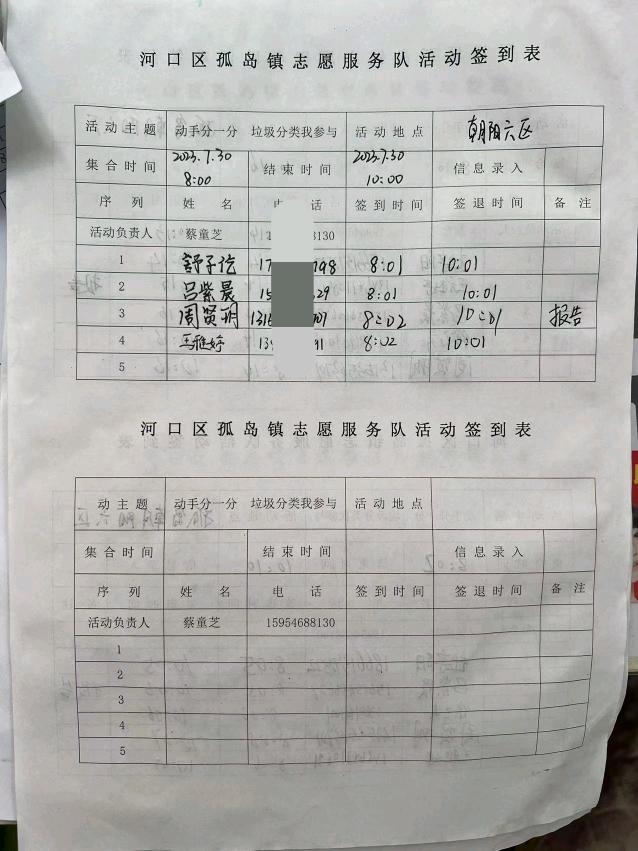 河口区孤岛镇志愿服务队活动签到表
活动主题 动手分一分 垃圾分类我参与 活动地点 朝阳六区
集合时间 2023.7.30 8:00 结束时间 2023.7.30 10:00 信息录入
序列 姓名 电话 签到时间 签退时间 备注
活动负责人 蔡童芝 130
1 舒子讫 8:01 10:01
2 吕紫晨 8:01 10:01
3 周贤玥 8:02 10:01 报告
4 马雅婷 8:02 10:01
5
河口区孤岛镇志愿服务队活动签到表
动主题 动手分一分 垃圾分类我参与 活动地点
集合时间 结束时间 信息录入
序列 姓名 电话 签到时间 签退时间 备注
活动负责人 蔡童芝 15954688130
1
2
3
4
5